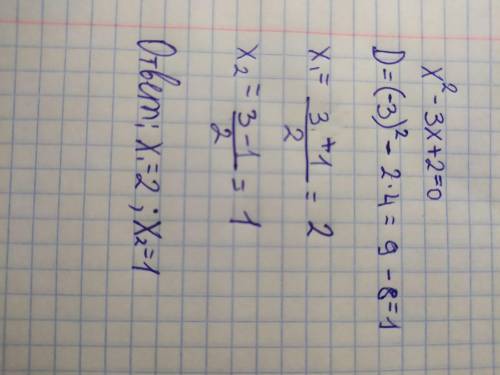 x² - 3x + 2 = 0
D = (-3)² - 2·4 = 9 - 8 = 1
x₁ = (3 + 1)/2 = 2
x₂ = (3 - 1)/2 = 1
Ответ: x₁ = 2 ; x₂ = 1